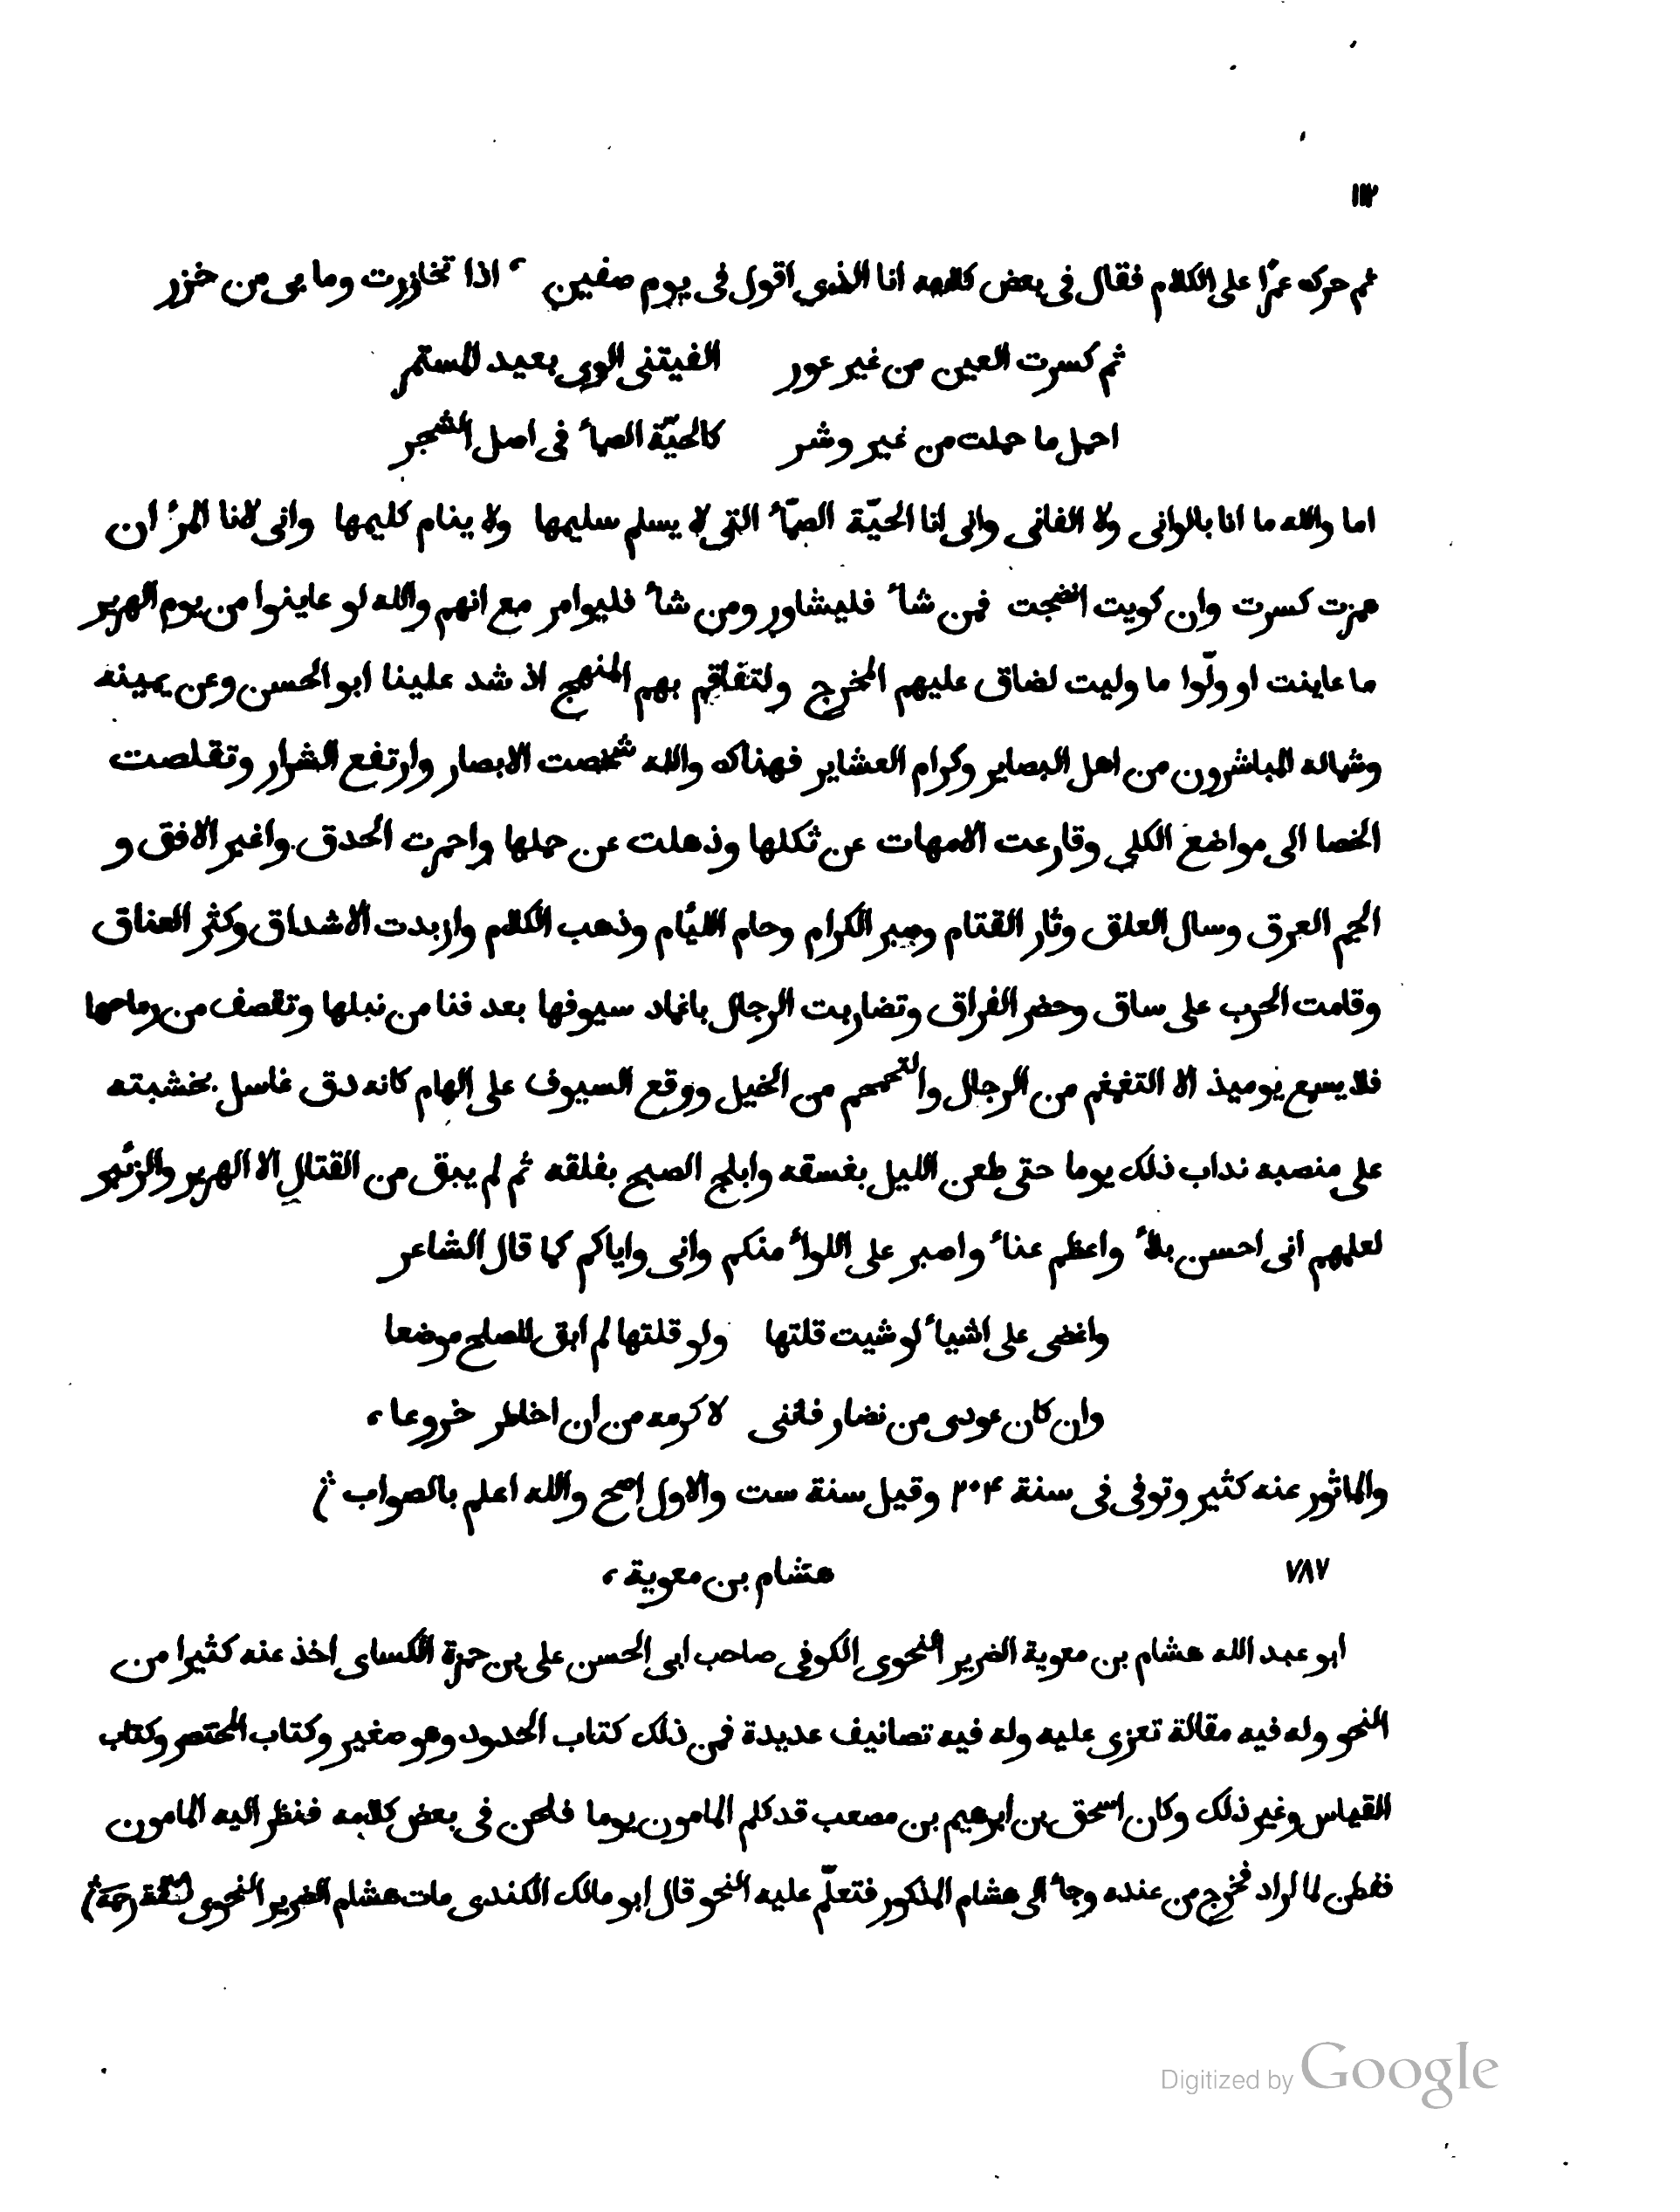 ١١٢
ثم حرك عمرًا على الكلام فقال فى بعض كلامه انا الذي اقول فى يوم صفين ، اذا تخازرت وما بى من خزر
ثم كسرت العين من غير عور الفيتنى الوى بعيد المستمر
احمل ما حملت من خير وشر كالحيّة الصمأ فى اصل الشجر
اما والله ما انا بالوانى ولا الفانى وانى انا الحيّة الصمّأ التى لا يسلم سليمها ولا ينام كليمها وانى لانا المرأ ان
همزت كسرت وان كويت انضجت فمن شأ فليشاور ومن شأ فليوامر مع انهم والله لو عاينوا من يوم الهرير
ما عاينت او ولّوا ما وليت لضاق عليهم المخرج ولتفاقم بهم المنهج اذ شد علينا ابو الحسن وعن يمينه
وشماله المباشرون من اهل البصاير وكرام العشاير فهناك والله شخصت الابصار وارتفع الشرار وتقلصت
الخصا الى مواضع الكلى وقارعت الامهات عن ثكلها وذهلت عن حملها واحمرت الحدق واغبر الافق و
الجم العرق وسال العلق وثار القتام وصبر الكرام وحام اللئام وذهب الكلام وازبدت الاشداق وكثر العناق
وقامت الحرب على ساق وحضر الفراق وتضاربت الرجال باغماد سيوفها بعد فنا من نبلها وتقصف من رماحها
فلا يسمع يوميذ الا التغمغم من الرجال والتحمحم من الخيل ووقع السيوف على الهام كانه دق غاسل بخشبته
على منصبه نداب ذلك يوما حتى طعن الليل بغسقه وابلج الصبح بفلقه ثم لم يبق من القتال الا الهرير والزئير
لعلمهم انى احسن بلأ واعظم عنأ واصبر على اللوأ منكم وانى واياكم كما قال الشاعر
واغضى على اشيأ لو شيت قلتها ولو قلتها لم ابق للصلح موضعا
وان كان عودى من نضار فاننى لا كرمه من ان اخاطر خروعا ،
والماثور عنه كثير وتوفى فى سنة ٢٠٤ وقيل سنة ست والاول اصح والله اعلم بالصواب
٧٨٧ هشام بن معوية ،
ابو عبد الله هشام بن معوية الضرير النحوى الكوفى صاحب ابى الحسن على بن حمزة الكساى اخذ عنه كثيرا من
النحو وله فيه مقالة تعزى عليه وله فيه تصانيف عديدة فمن ذلك كتاب الحدود وهو صغير وكتاب المختصر وكتاب
القياس وغير ذلك وكان اسحق بن ابرهيم بن مصعب قد كلم المامون يوما فلحن فى بعض كلامه فنظر اليه المامون
ففطن لما اراد فخرج من عنده وجأ الى هشام المذكور فتعلّم عليه النحو قال ابو مالك الكندى مات هشام الضرير النحوى
Digitized by Google